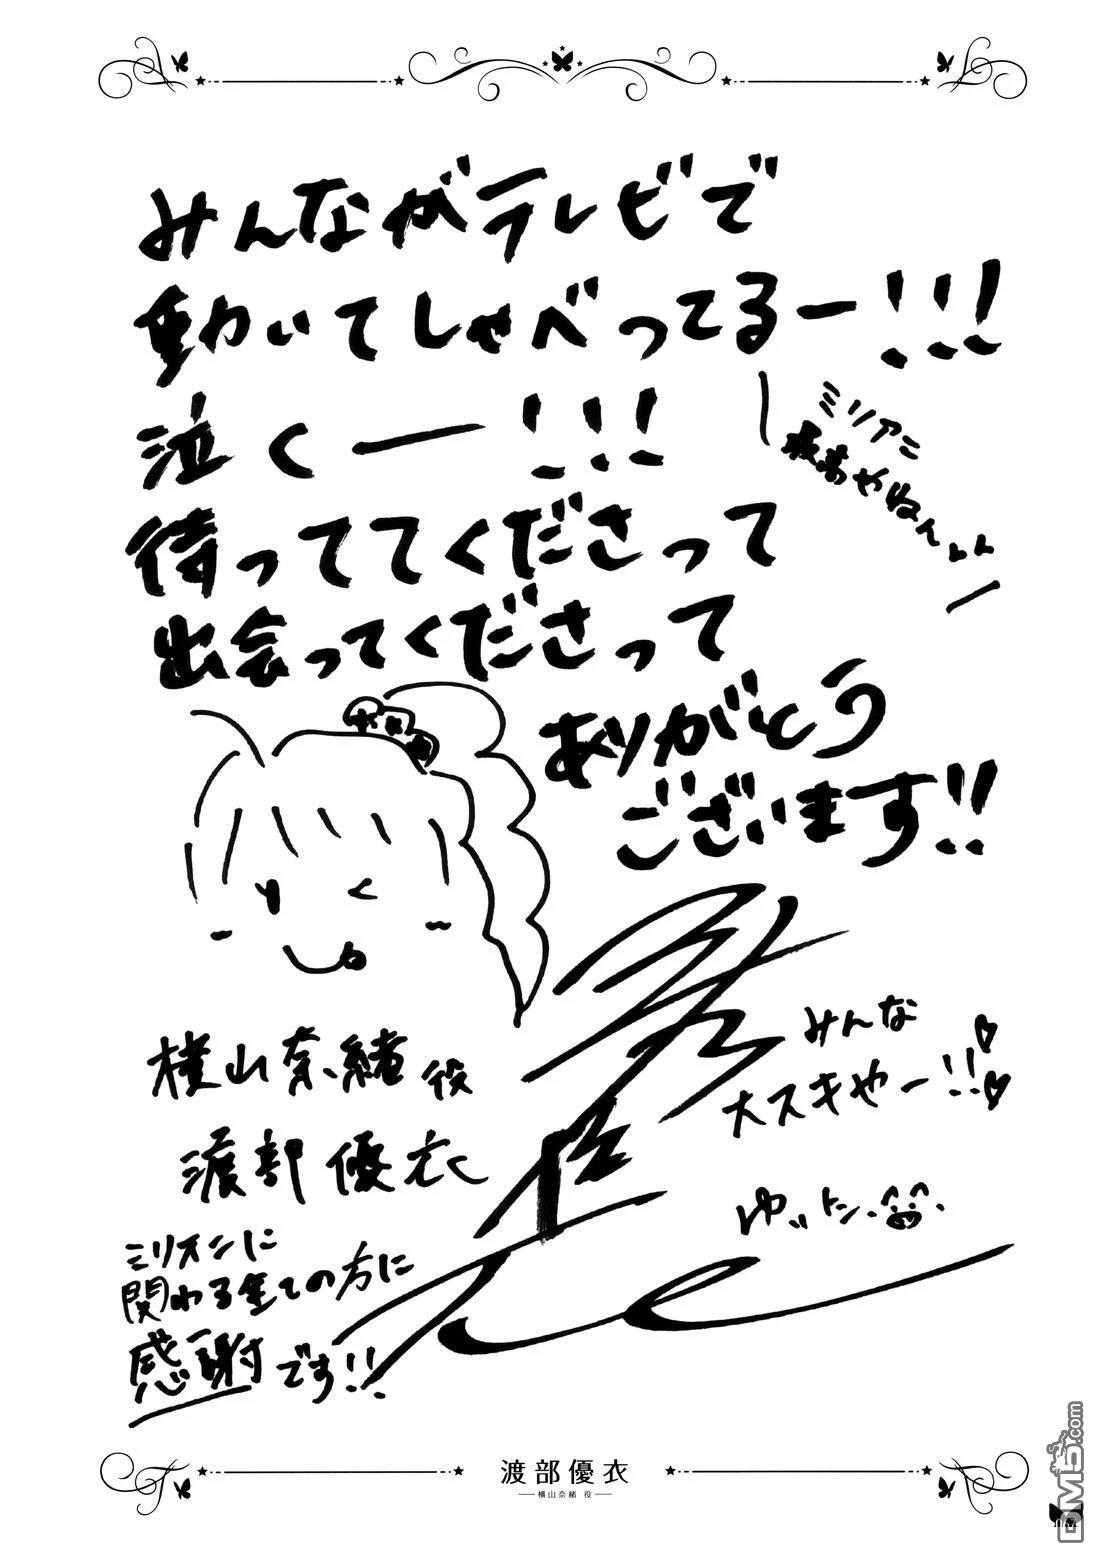 みんながテレビで
動いてしゃべってるー!!!
泣くー!!!
ミリアニ
最高やねん!!
待っててくださって
出会ってくださって
ありがとう
ございます!!
横山奈緒役
渡部優衣
みんな
大スキやー!!♡♡
ゆいトン
ミリオンに
関わる全ての方に
感謝です!!
渡部優衣
横山奈緒 役
DM5.com